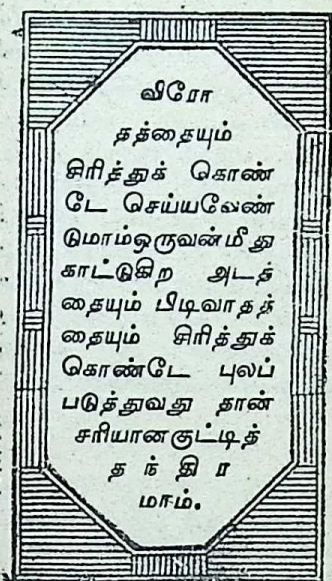 விரோ
தத்தையும்
சிரித்துக் கொண்
டே செய்யவேண்
டுமாம்ஒருவன்மீது
காட்டுகிற அடத்
தையும் பிடிவாதத்
தையும் சிரித்துக்
கொண்டே புலப்
படுத்துவது தான்
சரியானகுட்டித்
த ந் தி ர
மாம்.